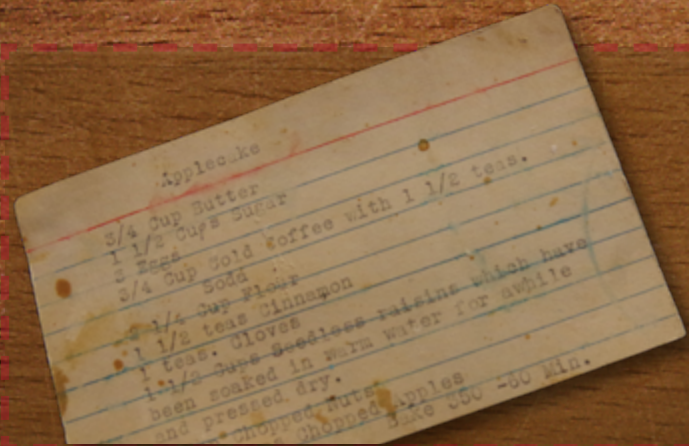 Applecake
3/4 Cup Butter
1 1/2 Cups Sugar
3 Eggs
3/4 Cup Cold Coffee with 1 1/2 teas.
Soda
1/4 Cup Flour
1 1/2 teas Cinnamon
1 teas. Cloves
1-1/2 Cups Seedless raisins which have
been soaked in warm water for awhile
and pressed dry.
Chopped Nuts
Chopped Apples
Bake 350 -60 Min.